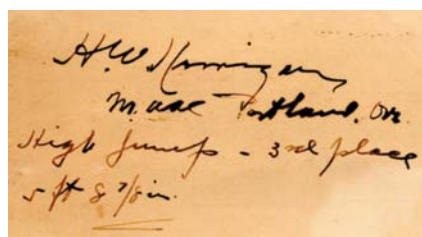 H.W. Kerrigan
M. AAC Portland, Or.
High Jump - 3rd place
5 ft 8 7/8 in.